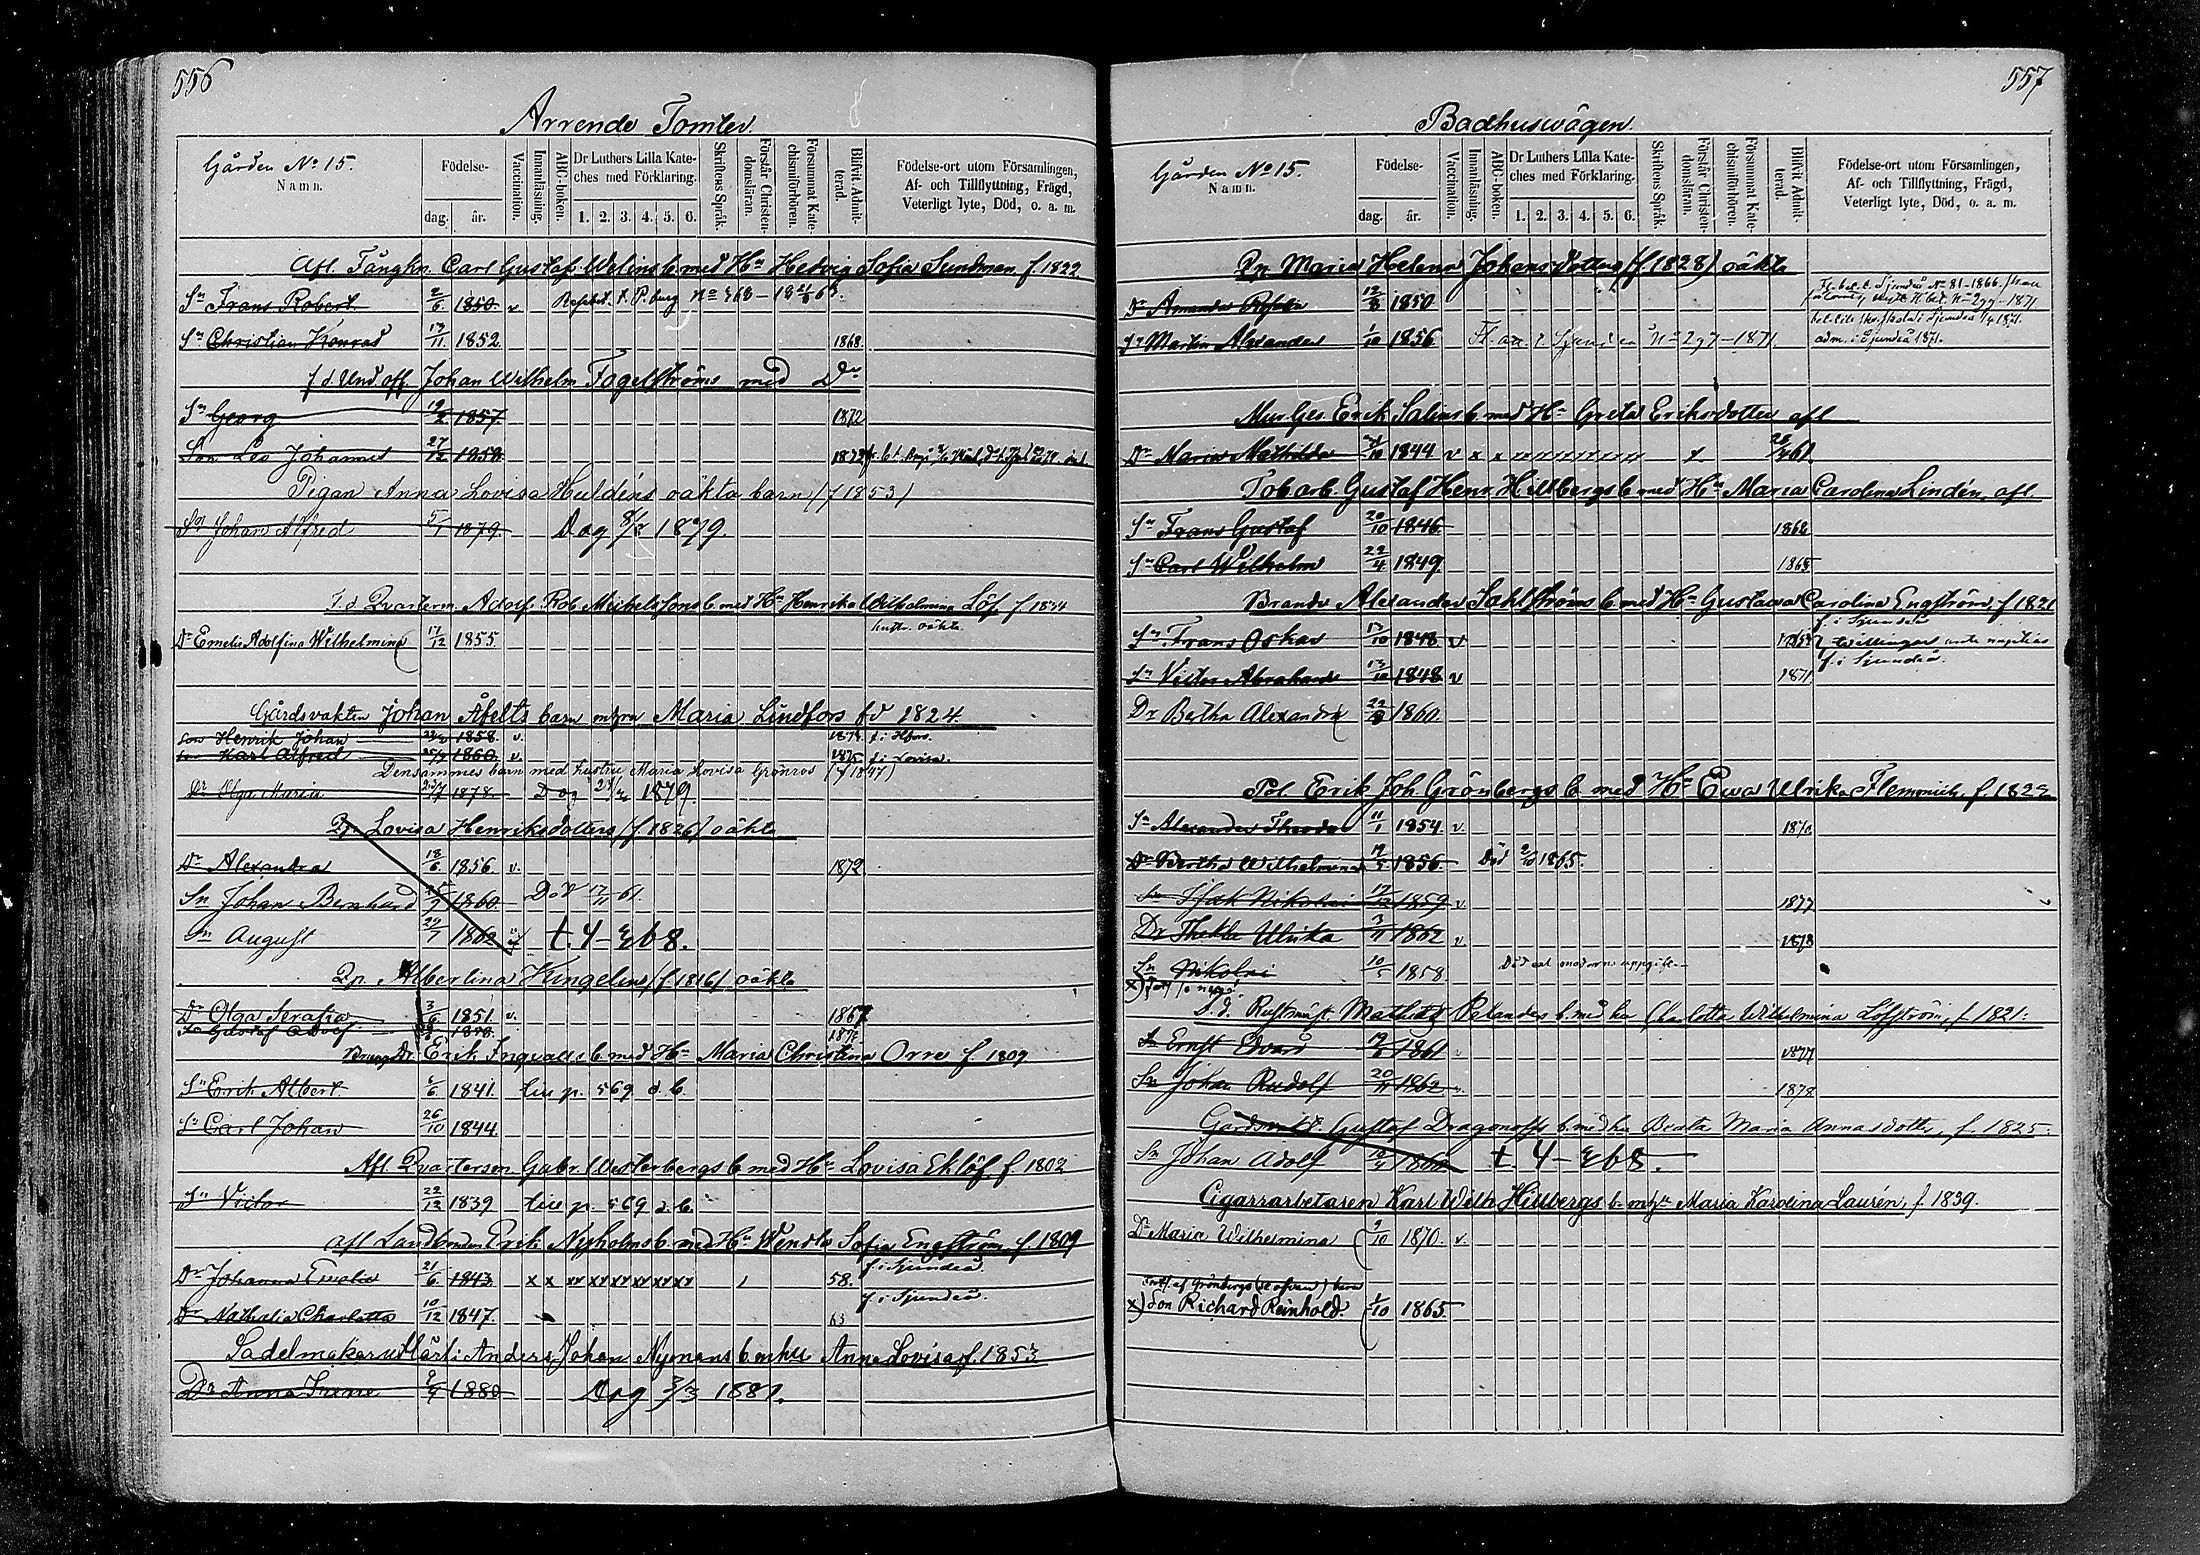 556
Arrende Tomter.
Gården No 15.
Namn.
Födelse-
dag. år.
Vaccination.
Innanläsning.
ABC-boken.
Dr Luthers Lilla Kate-
ches med Förklaring.
1. 2. 3. 4. 5. 6.
Skriftens Språk.
Förstår Christen-
domsläran.
Försummat Kate-
chismiförhören.
Blifvit Admit-
terad.
Födelse-ort utom Församlingen,
Af- och Tillflyttning, Frägd,
Veterligt lyte, Död, o. a. m.
Afl. Fångkn. Carl Gustaf Welins b. med Hu Hedvig Sofia Sundman f. 1822
Sn Frans Robert 2/6 1850. v
Sn Christian Konrad 13/11 1852. 1868
f. d. Und.off. Johan Wilhelm Fogelströms med Do
Sn Georg 19/2 1857. 1872
Son Leo Johannes 27/12 1858
Pigan Anna Lovisa Huldéns oäkta barn (f 1853)
Sn Johan Alfred 5/1 1879. Dog 1879.
Adolf Rob. Michelssons b. med Hu Henrika Wilhelmina Löf f. 1834
Dr Emelie Adolfina Wilhelmina 17/12 1855.
Gårdsvakten Johan Åfelts barn m hyn Maria Lindfors fd 1824.
son Henrik Johan 1858. v. f. i Hfors.
son Karl Alfred 1860. v 1875 f. i Lovisa.
Densammes barn med hustru Maria Lovisa Grönros (f 1847)
Dr Olga Maria 1878. Dog 1879.
Qp. Lovisa Henriksdotters (f. 1826) oäkta
Dr Alexandra 18/6 1856. v. 1872
Sn Johan Bernhard 1860 Död 17/11 61.
Sn August 29/7 1862 t. 4-868.
Qp. Albertina Kingelins (f. 1816) oäkta
Dr Olga Serafia 3/6 1851. v. 1867
Sn Gustaf Adolf
Erik Ingvalls b. med Hu Maria Christina Orre f. 1809
Sn Erik Albert 1841. p. 569 d. b.
Sn Carl Johan 26/10 1844.
Afl. Qvartersm. Gabr. Westerbergs b. med Hu Lovisa Eklöf f. 1802
Sn Victor 22/12 1839 p. 569 d. b.
afl Landbonden Erik Nyholms b. med Hu Wendla Sofia Engström f. 1809
f. i Sjundeå.
Dr Johanna Emelie 21/6 1843 x x 58.
f. i Sjundeå.
Dr Nathalia Charlotta 10/12 1847. 63
Sadelmakareutlärl: Anders Johan Nymans b m hu Anna Lovisa f. 1853
Dr Anna Irene 1880 Dog 3/3 1881.
557
Badhuswägen.
Gården No 15.
Namn.
Födelse-
dag. år.
Vaccination.
Innanläsning.
ABC-boken.
Dr Luthers Lilla Kate-
ches med Förklaring.
1. 2. 3. 4. 5. 6.
Skriftens Språk.
Förstår Christen-
domsläran.
Försummat Kate-
chismiförhören.
Blifvit Admit-
terad.
Födelse-ort utom Församlingen,
Af- och Tillflyttning, Frägd,
Veterligt lyte, Död, o. a. m.
Qp. Maria Helena Johansdotters (f. 1828) oäkta
Dr Amanda 12/8 1850
Sn Martin Alexander 1/10 1856 adm. i Sjundeå 1871.
Mur.Ges. Erik Salins b. med Hu Greta Eriksdotter afl
Dr Maria Mathilda 1844 v x x
Tob.arb. Gustaf Henr. Hillbergs b. med Hu Maria Carolina Lindén, afl
Sn Frans Gustaf 20/10 1846. 1862
Sn Carl Wilhelm 22/4 1849. 1865
Brandv Alexander Sahlströms b. med Hu Gustava Carolina Engström f. 1821
f. i Sjundeå
Sn Frans Oskar 13/10 1848. v
f. i Sjundeå.
Sn Victor Abraham 13/10 1848 v 1871
Dr Betha Alexandra 1860
Pol. Erik Joh. Grönbergs b. med Hu Ewa Ulrika Flemmich, f. 1822
Sn Alexander Theodor 11/1 1854. v. 1870
Dr Bertha Wilhelmina 1856. Död 1865.
Sn Isak Nikolai 1859 v 1877
Dr Thekla Ulrika 3/11 1862 v 1878
Sn Nikolai 10/5 1858
Pelanders b. med hu Charlotta Wilhelmina Löfström, f. 1821.
Sn Ernst Edvard 1861 1877
Sn Johan Rudolf 20/11 1862 1878
Gårdsvakt. Gustaf Dragonoffs b. med hu Beata Maria Annasdotter, f. 1825.
Sn Johan Adolf 1860 t. 4-868.
Cigarrarbetaren Karl Wilh. Hillbergs b. m hu Maria Karolina Laurén, f. 1839.
Dr Maria Wilhelmina 9/10 1870. v.
x) Son Richard Reinhold. 1/10 1865.